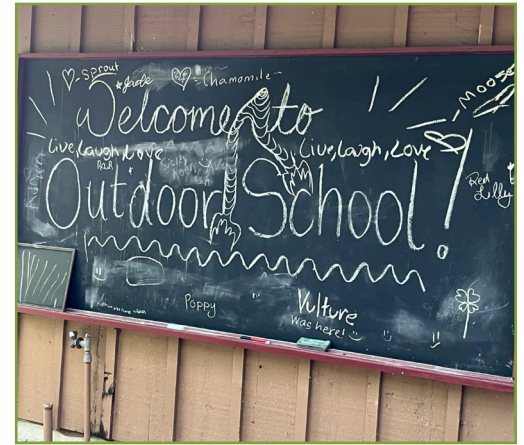 ♡-Sprout
Jade
-Chamomile-
Moose
Welcome to
Live, Laugh, Love
Live, Laugh, Love
Red Lilly
Outdoor School!
Poppy
Vulture
was here!